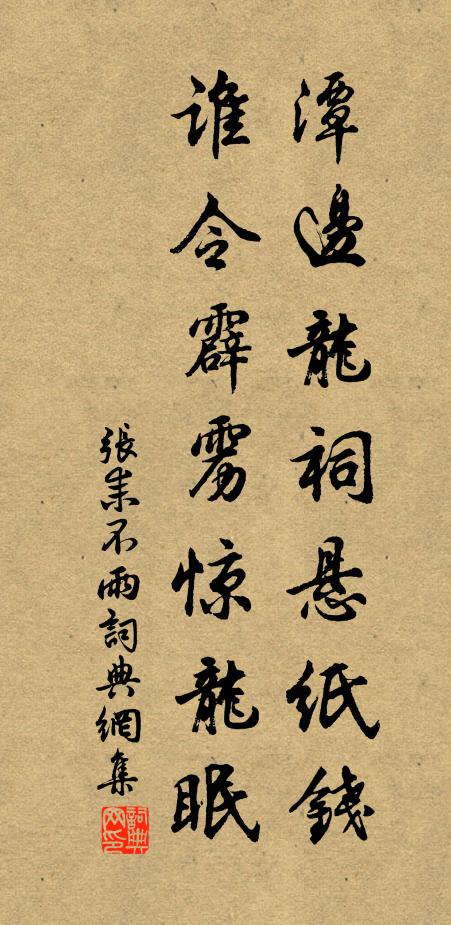 潭邊龍祠悬紙錢
誰令霹雳惊龍眠
張耒不雨詞典網集
詞典網印